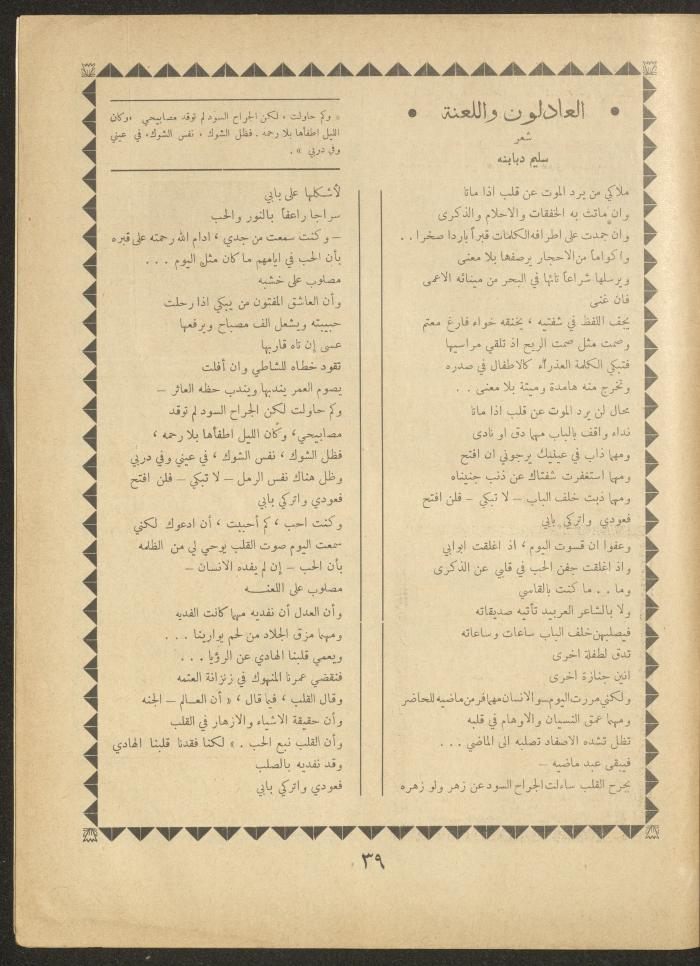 العادلون واللعنة
شعر
سليم دبابنه
« وكم حاولت ، لكن الجراح السود لم توقد مصابيحي ، وكان
الليل اطفأها بلا رحمه . فظل الشوك ، نفس الشوك، في عيني
وفي دربي » .
ملاكي من يرد الموت عن قلب اذا ماتا
وان ماتت به الخفقات والاحلام والذكرى
وان جمدت على اطرافه الكلمات قبراً باردا صخرا . .
واكواماً من الاحجار يرصفها بلا معنى
ويرسلها شراعاً تائها في البحر من مينائه الاعمى
فان غنى
يجف اللفظ في شفتيه ، يخنقه خواء فارغ معتم
وصمت مثل صمت الريح اذ تلقي مراسيها
فتبكي الكلمة العذراء كالاطفال في صدره
وتخرج منه هامدة وميتة بلا معنى . .
محال لن يرد الموت عن قلب اذا ماتا
نداء واقف بالباب مهما دق او نادى
ومهما ذاب في عينيك يرجوني ان افتح
ومهما استغفرت شفتاك عن ذنب جنيناه
ومهما ذبت خلف الباب – لا تبكي – فلن افتح
فعودي واتركي بابي
وعفوا ان قسوت اليوم ، اذ اغلقت ابوابي
واذ اغلقت جفن الحب في قلبي عن الذكرى
وما . . ما كنت بالقاسي
ولا بالشاعر العربيد تأتيه صديقاته
فيصلبهن خلف الباب ساعات وساعاته
تدق لطفلة اخرى
انين جنازة اخرى
ولكني مررت اليوم سو الانسان مهما فر من ماضيه للحاضر
ومهما عمق النسيان والاوهام في قلبه
تظل تشده الاصفاد تصلبه الى الماضي . . .
فيبقى عبد ماضيه –
يجرح القلب ساءلت الجراح السود عن زهر ولو زهره
لأشكلها على بابي
سراجا راعفاً بالنور والحب
– وكنت سمعت من جدي ، ادام الله رحمته على قبره
بأن الحب في ايامهم ما كان مثل اليوم . . .
مصلوب على خشبه
وأن العاشق المفتون من يبكي اذا رحلت
حبيبته ويشعل الف مصباح ويرفعها
عسى إن تاه قاربها
تقود خطاه للشاطي وان أفلت
يصوم العمر يندبها ويندب حظه العاثر –
وكم حاولت لكن الجراح السود لم توقد
مصابيحي، وكان الليل اطفأها بلا رحمه ،
فظل الشوك ، نفس الشوك ، في عيني وفي دربي
وظل هناك نفس الرمل – لا تبكي – فلن افتح
فعودي واتركي بابي
وكنت احب ، كم أحببت ، أن ادعوك لكني
سمعت اليوم صوت القلب يوحي لي من الظلمه
بأن الحب – إن لم يفده الانسان –
مصلوب على اللعنـــه
وأن العدل أن نفديه مهما كانت الفديه
ومهما مزق الجلاد من لحم يوارينا . . .
ويعمي قلبنا الهادي عن الرؤيا . . .
فنقضي عمرنا المنهوك في زنزانة العتمه
وقال القلب ، فيما قال ، « أن العالم – الجنه
وأن حقيقة الاشياء والازهار في القلب
وأن القلب نبع الحب . » لكنا فقدنا قلبنا الهادي
وقد نفديه بالصلب
فعودي واتركي بابي
٣٩